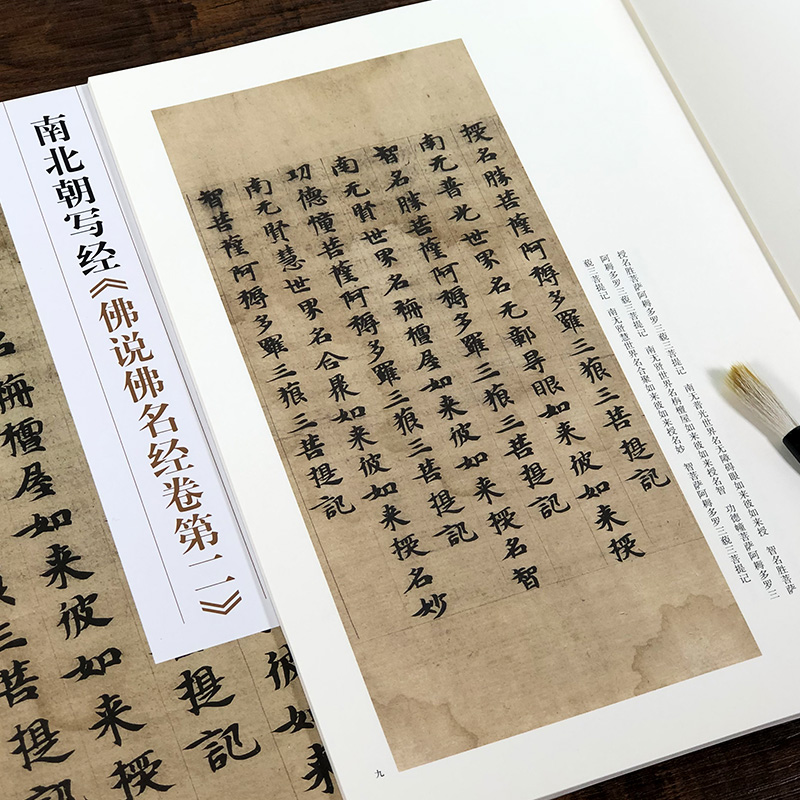 南北朝写经《佛说佛名经卷第二》
授名勝菩薩阿耨多羅三藐三菩提記
南无普光世界名无鄣导眼如来彼如来授
智名勝菩薩阿耨多羅三藐三菩提記
南无賢世界名栴檀屋如来彼如来授名智
功德憧菩薩阿耨多羅三藐三菩提記
南无賢慧世界名合聚如来彼如来授名妙
智菩薩阿耨多羅三藐三菩提記
授名胜菩萨阿耨多罗三藐三菩提记 南无普光世界名无障碍眼如来彼如来授 智名胜菩萨
阿耨多罗三藐三菩提记 南无贤世界名栴檀屋如来彼如来授名智 功德幢菩萨阿耨多罗三
藐三菩提记 南无贤慧世界名合聚如来彼如来授名妙 智菩萨阿耨多罗三藐三菩提记
九
彼如来
提記
名栴檀屋如来彼如来授
三菩提